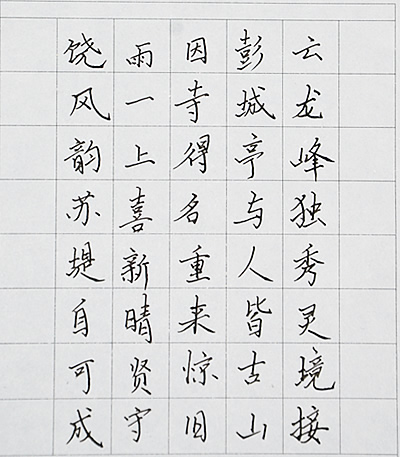 云龙峰独秀灵境接
彭城亭与人皆古山
因寺得名重来惊旧
雨一上喜新晴贤守
饶风韵苏堤自可成